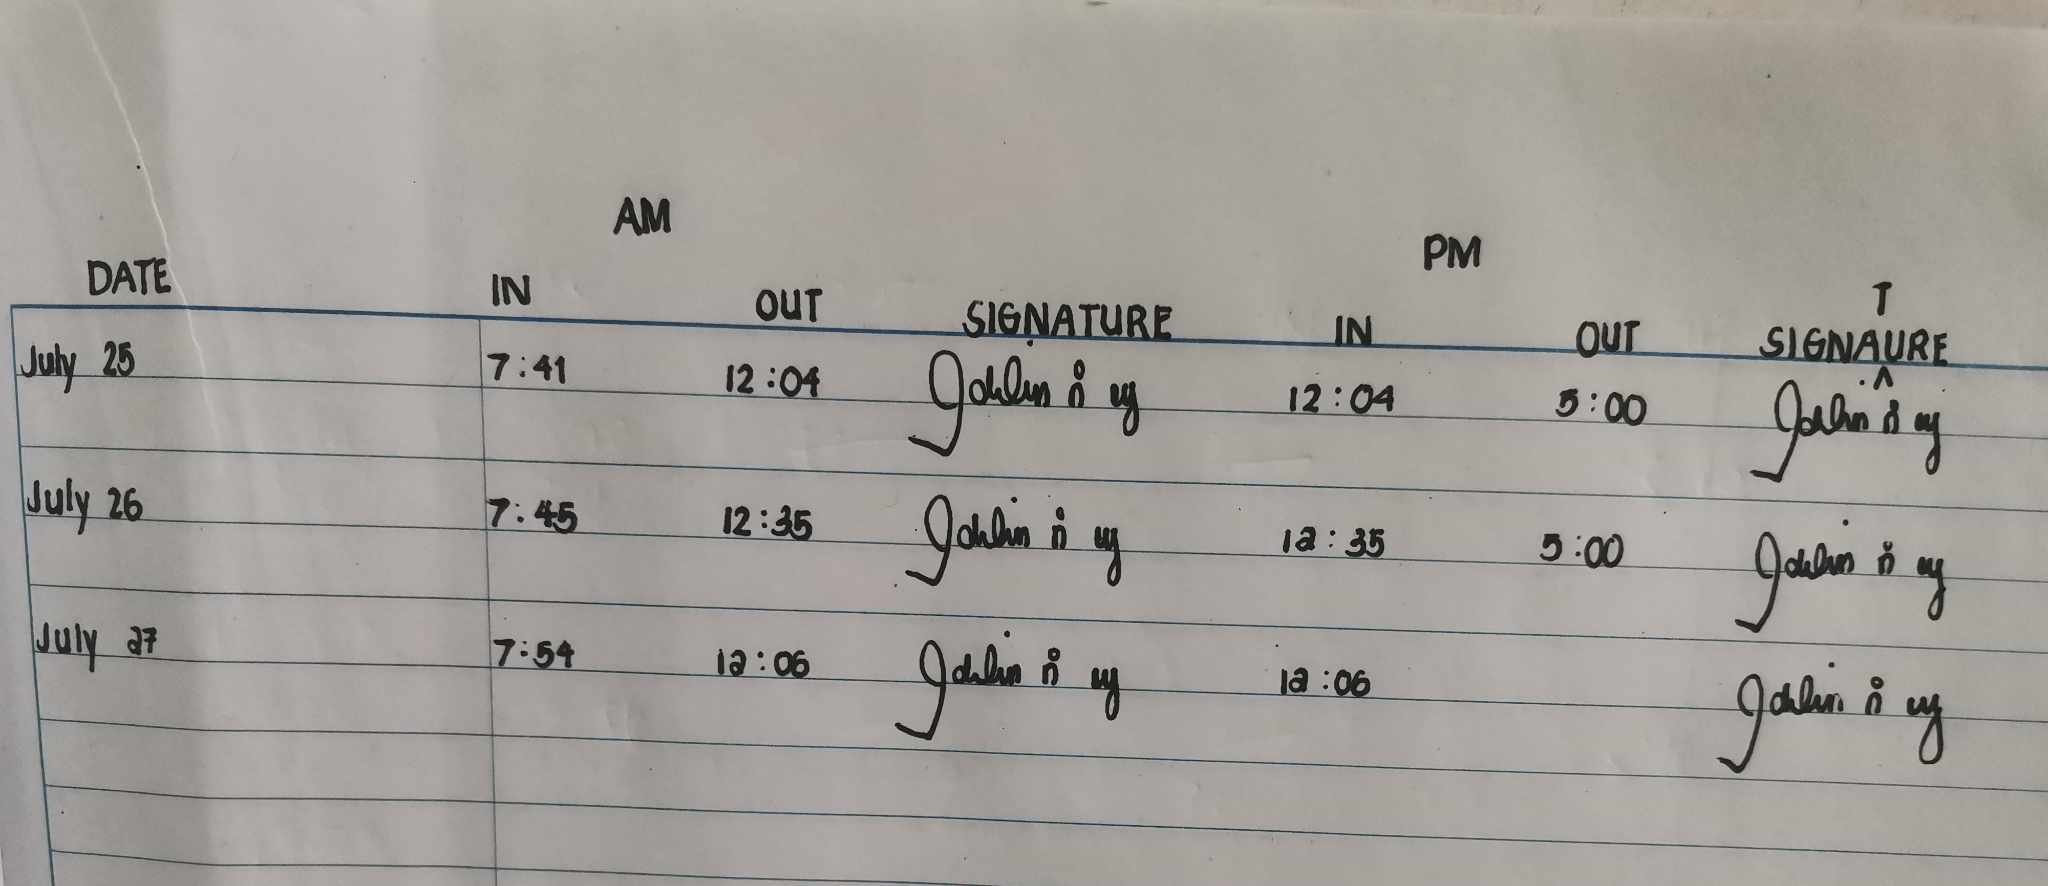 AM PM
DATE IN OUT SIGNATURE IN OUT SIGNATURE
July 25 7:41 12:04 12:04 5:00
July 26 7:45 12:35 12:35 5:00
July 27 7:54 12:06 12:06